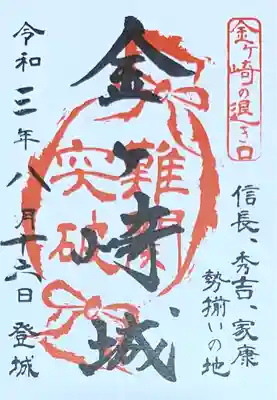 金ヶ崎の退き口
信長、秀吉、家康
勢揃いの地
金ヶ崎城
難関
突破
令和三年八月十六日 登城